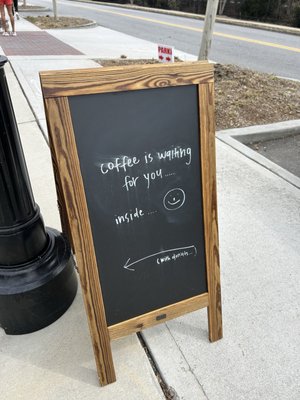 PARKI
coffee is waiting
for you.....
inside....
(with donuts...)